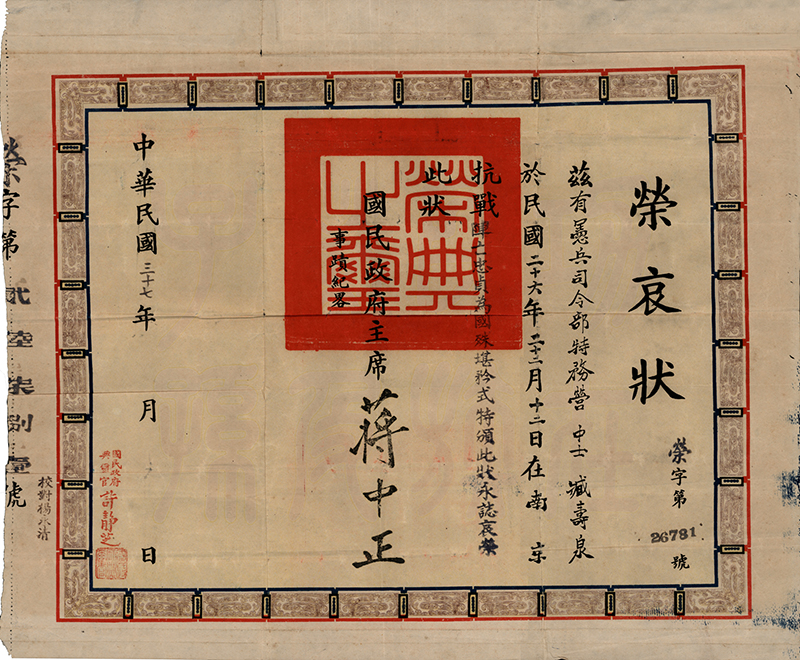 榮哀狀
榮字第
26781
號
茲有憲兵司令部特務營 中士 臧壽泉
於民國二十六年十二月十二日在南京
抗戰陣亡忠貞為國殊堪矜式特頒此狀永誌哀榮
此狀
國民政府主席 蔣中正
事蹟紀畧
榮典之璽
中華民國三十七年 月 日
國民政府
典璽官 許靜芝
榮字第 貳陸柒捌壹號
校對楊永清